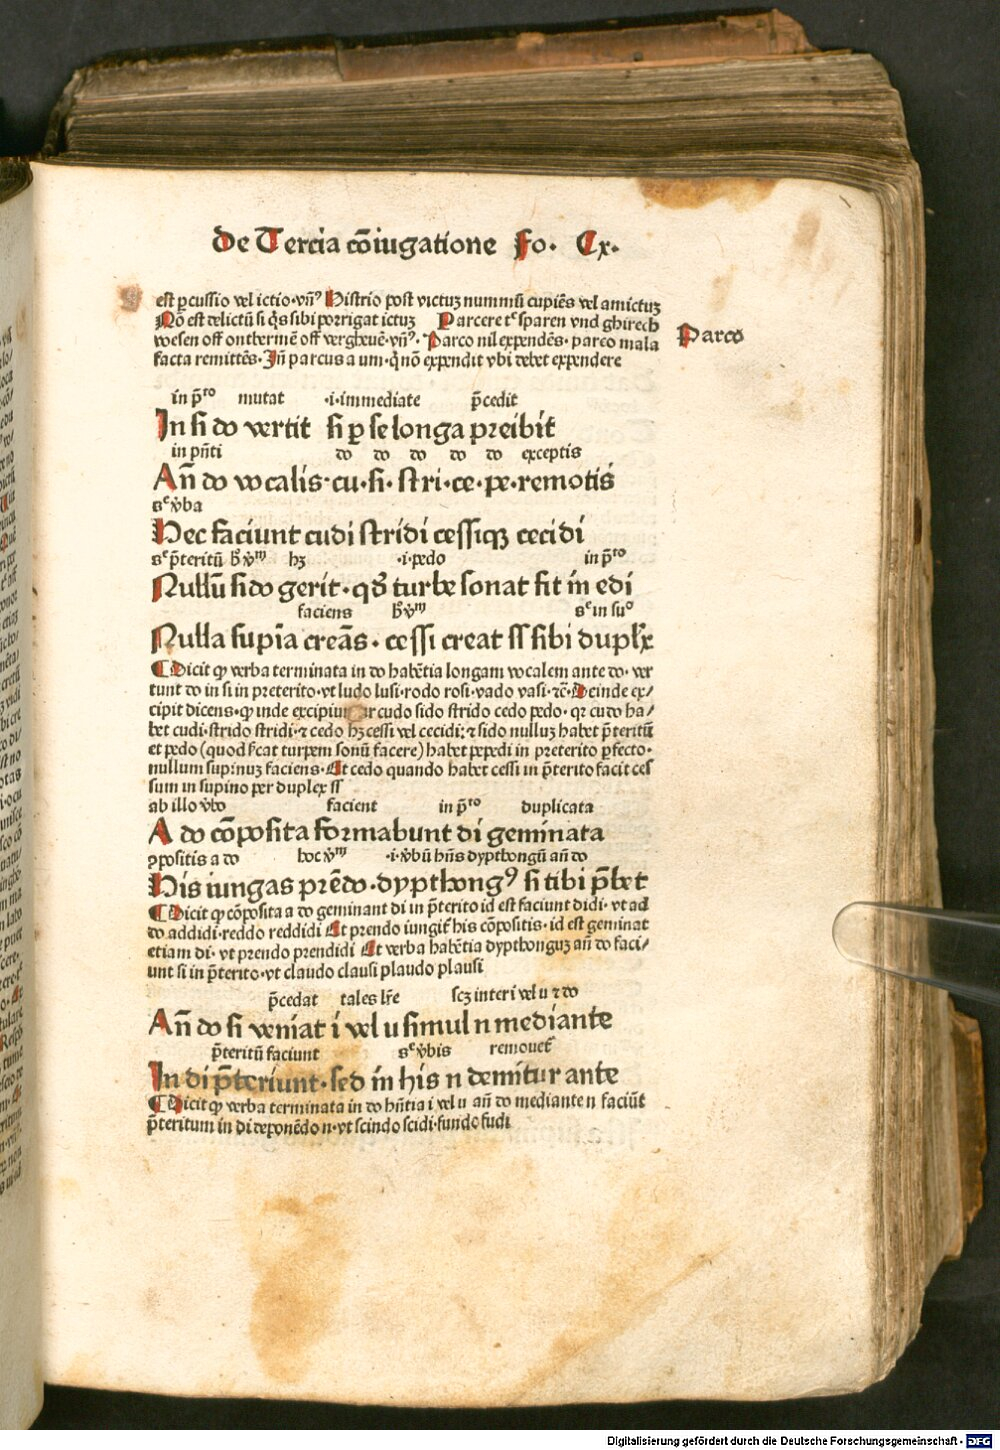 De Tercia cōiugatione Fo. Cx.
est ꝑcussio vel ictio·vñꝰ Histrio post victuꝫ nummū cupiēs vel amictuꝫ
Nō est delictū si q̇s sibi porrigat ictuꝫ Parcere tᵉ sparen vnd ghirech
wesen off ontbermē off verghevē·vñꝰ· Parco nil expendēs· parco mala
Parco
facta remittēs· Iñ parcus a um·q̇ nō expendit vbi debet expendere
in p̄ᵗᵒ mutat ·i·immediate p̄cedit
In si do vertit si ꝑ se longa preibit
in pñti do do do do do exceptis
Añ do vocalis·cu·si·stri·ce·pe·remotis
sᵉ v̇ba
Hec faciunt cudi stridi cessiqꝫ cecidi
sᵉ p̄teritū hꝫ ·i·pedo in p̄ᵗᵒ
Nullū sido gerit·qd̕ turbe sonat fit in edi
faciens sᵉ in suᵒ
Nulla supīa creās·cessi creat ss sibi duplꝛx
¶Dicit ꝙ verba terminata in do habētia longam vocalem ante do· ver
tunt do in si in preterito·vt ludo lusi·rodo rosi·vado vasi·ꝛc̄·Deinde ex/
cipit dicens·ꝙ inde excipiuntur cudo sido strido cedo pedo·qꝛ cudo ha/
bet cudi·strido stridi·ꝛ cedo hꝫ cessi vel cecidi:ꝛ sido nulluꝫ habet p̄teritū
et pedo (quod ſcat turpem sonū facere) habet pepedi in preterito ꝑfecto·
nullum supinuꝫ faciens·At cedo quando habet cessi in p̄terito facit ces
sum in supino per duplex ss
ab illo v̇bo facient in p̄ᵗᵒ duplicata
A do cōposita formabunt di geminata
ꝯpositis a do hoc v̇ᵐ ·i·v̇bū hñs dyptbongū añ do
His iungas prēdo·dyptbongꝰ si tibi p̄bet
¶Dicit ꝙ cōposita a do geminant di in p̄terito id est faciunt didi·vt ad
do addidi·reddo reddidi At prendo iungit̄ his cōpositis·id est geminat
etiam di·vt prendo prendidi At verba habētia dyptbonguꝫ añ do faci/
unt si in p̄terito·vt claudo clausi plaudo plausi
p̄cedat tales lr̄e scꝫ inter i vel u ꝛ do
Añ do si veniat i vel u simul n mediante
p̄teritū faciunt sᵉ v̇bis removet̄
In di p̄teriunt·sed in his n demitur ante
¶Dicit ꝙ verba terminata in do hñtia i vel u añ do mediante n faciūt
p̄teritum in di deponēdo n·vt scindo scidi·fundo fudi
Digitalisierung gefördert durch die Deutsche Forschungsgemeinschaft - DFG